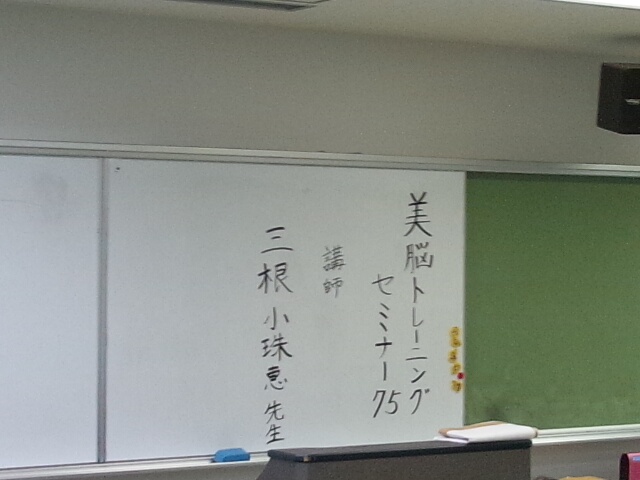 美脳トレーニング
セミナー75
講師
三根小珠恵先生